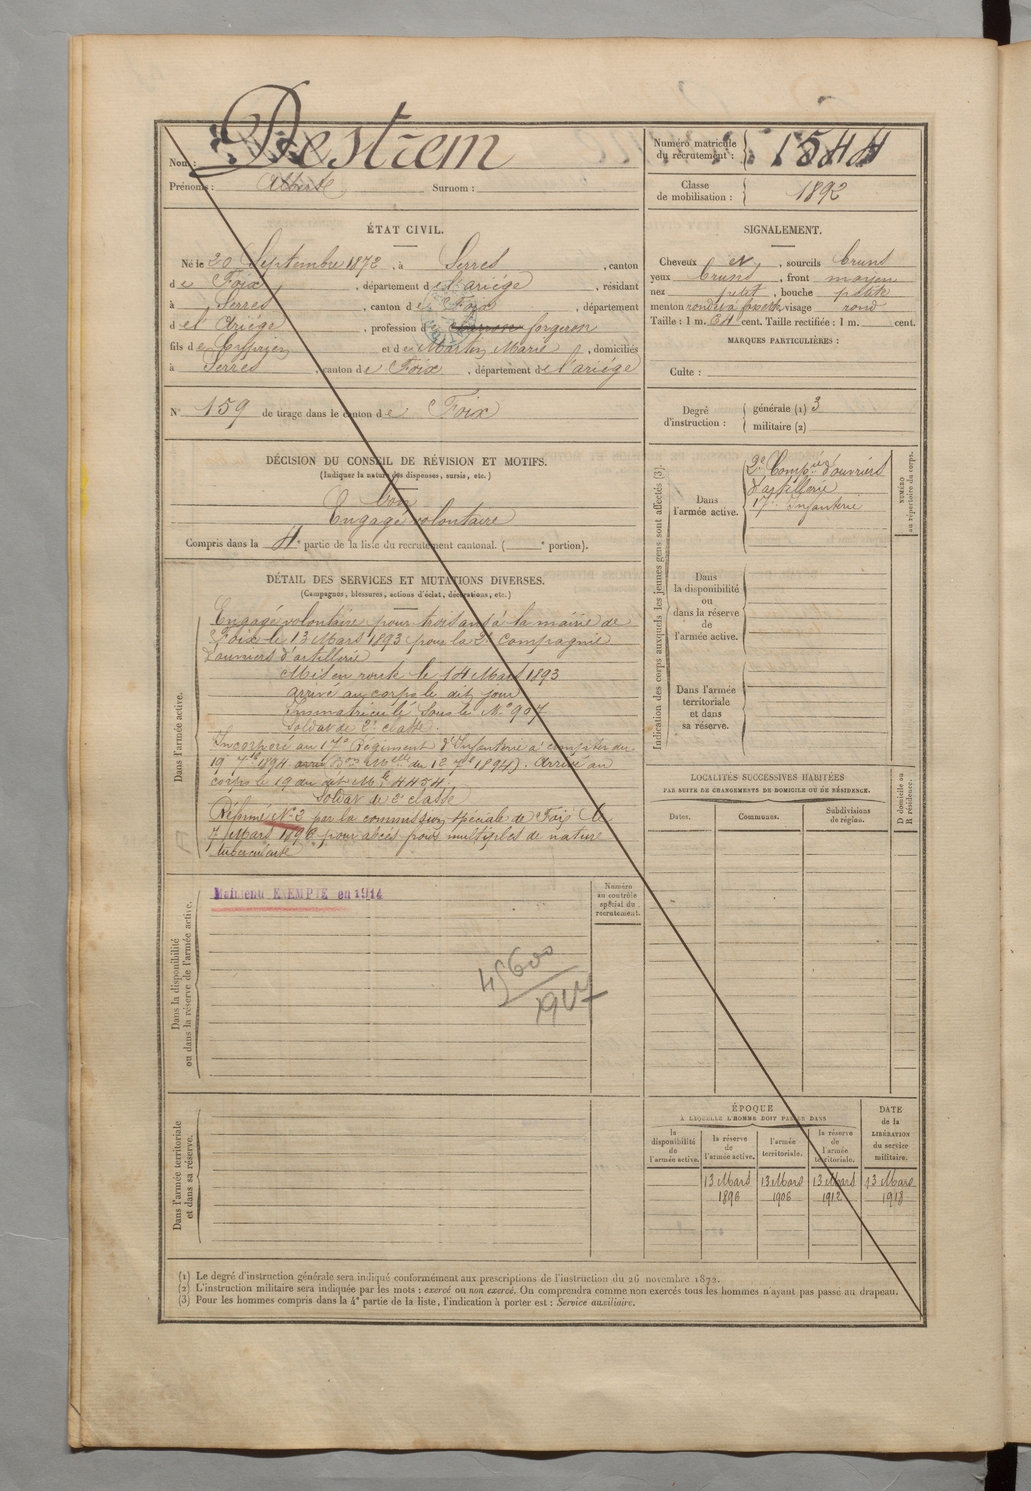 Nom : Destrem
Prénoms : Albert Surnom :
Numéro matricule du recrutement : 1544
Classe de mobilisation : 1892
ÉTAT CIVIL.
Né le 20 Septembre 1872, à Serres, canton
de Foix, département de l'ariège, résidant
à Serres, canton de Foix, département
de l'Ariège, profession de forgeron
fils de Cyprien et de Martin Marie, domiciliés
à Serres, canton de Foix, département de l'ariège
N° 159 de tirage dans le canton de Foix
SIGNALEMENT.
Cheveux et, sourcils bruns
yeux bruns, front moyen
nez petit, bouche petite
menton rond à fossette visage rond
Taille : 1 m. 64 cent. Taille rectifiée : 1 m. cent.
MARQUES PARTICULIÈRES :
Culte :
Degré d'instruction : générale (1) 3
militaire (2)
DÉCISION DU CONSEIL DE RÉVISION ET MOTIFS.
(Indiquer la nature des dispenses, sursis, etc.)
bon
Engagé volontaire
Compris dans la 4e partie de la liste du recrutement cantonal. ( e portion).
DÉTAIL DES SERVICES ET MUTATIONS DIVERSES.
(Campagnes, blessures, actions d'éclat, décorations, etc.)
Dans l'armée active.
Engagé volontaire pour trois ans à la mairie de
Foix le 13 Mars 1893 pour la 2e Compagnie
d'ouvriers d'artillerie
Mis en route le 14 Mars 1893
arrivé au corps le dit jour
Immatriculé sous le N° 907
Soldat de 2e classe.
Incorporé au 17e Régiment d'Infanterie à compter du
19 7bre 1894 du 12 7bre 1894). Arrivé au
corps le 19 du dit Mle 4454
Soldat de 2e classe
Réformé N° 2 par la commission spéciale de Foix le
7 Mars 1896 pour abcès multiples de nature
tuberculeuse
Indication des corps auxquels les jeunes gens sont affectés (3).
NUMÉRO au répertoire du corps.
Dans l'armée active.
2e Compie d'ouvriers
d'artillerie
17e Infanterie
Dans la disponibilité ou dans la réserve de l'armée active.
Dans l'armée territoriale et dans sa réserve.
LOCALITÉS SUCCESSIVES HABITÉES
PAR SUITE DE CHANGEMENTS DE DOMICILE OU DE RÉSIDENCE.
Dates. Communes. Subdivisions de région.
D domicile ou R résidence.
Dans la disponibilité ou dans la réserve de l'armée active.
Maintenu EXEMPTÉ en 1914
Numéro au contrôle spécial du recrutement.
45600
1917
Dans l'armée territoriale et dans sa réserve.
ÉPOQUE
À LAQUELLE L'HOMME DOIT PASSER DANS
la disponibilité de l'armée active.
la réserve de l'armée active.
l'armée territoriale.
la réserve de l'armée territoriale.
DATE de la LIBÉRATION du service militaire.
13 Mars 1896
13 Mars 1906
13 Mars 1912
13 Mars 1918
(1) Le degré d'instruction générale sera indiqué conformément aux prescriptions de l'instruction du 26 novembre 1872.
(2) L'instruction militaire sera indiquée par les mots : exercé ou non exercé. On comprendra comme non exercés tous les hommes n'ayant pas passé au drapeau.
(3) Pour les hommes compris dans la 4e partie de la liste, l'indication à porter est : Service auxiliaire.